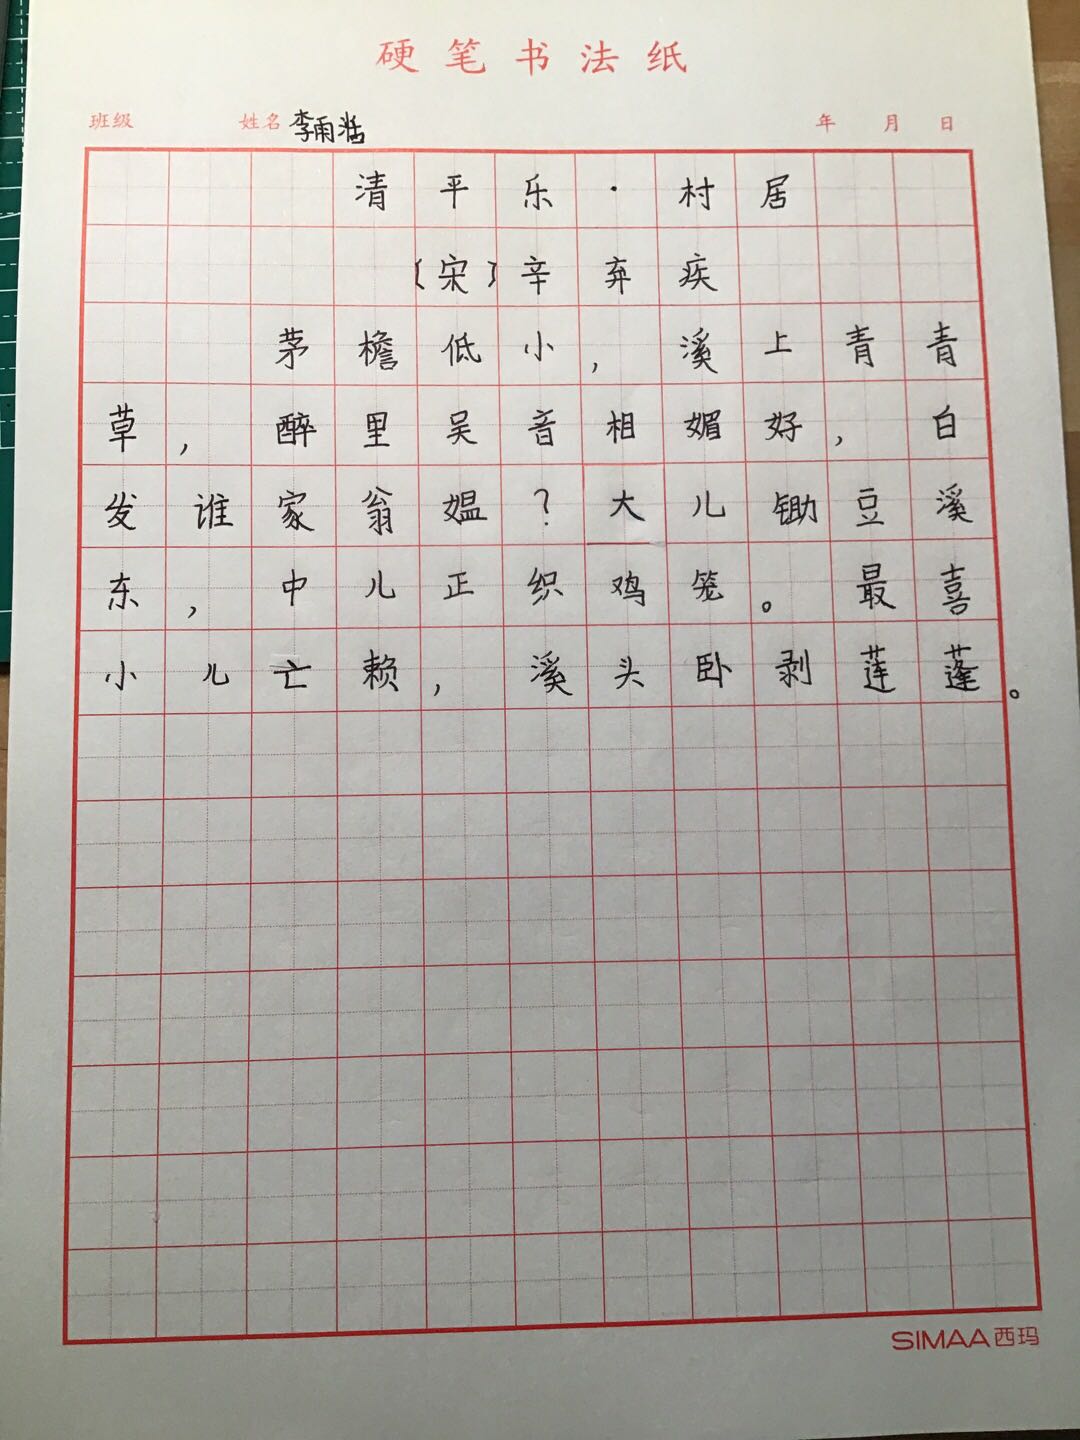 硬笔书法纸
班级 姓名 李雨湉 年 月 日
清平乐·村居
〔宋〕辛弃疾
茅檐低小，溪上青青
草，醉里吴音相媚好，白
发谁家翁媪？大儿锄豆溪
东，中儿正织鸡笼。最喜
小儿亡赖，溪头卧剥莲蓬。
SIMAA西玛